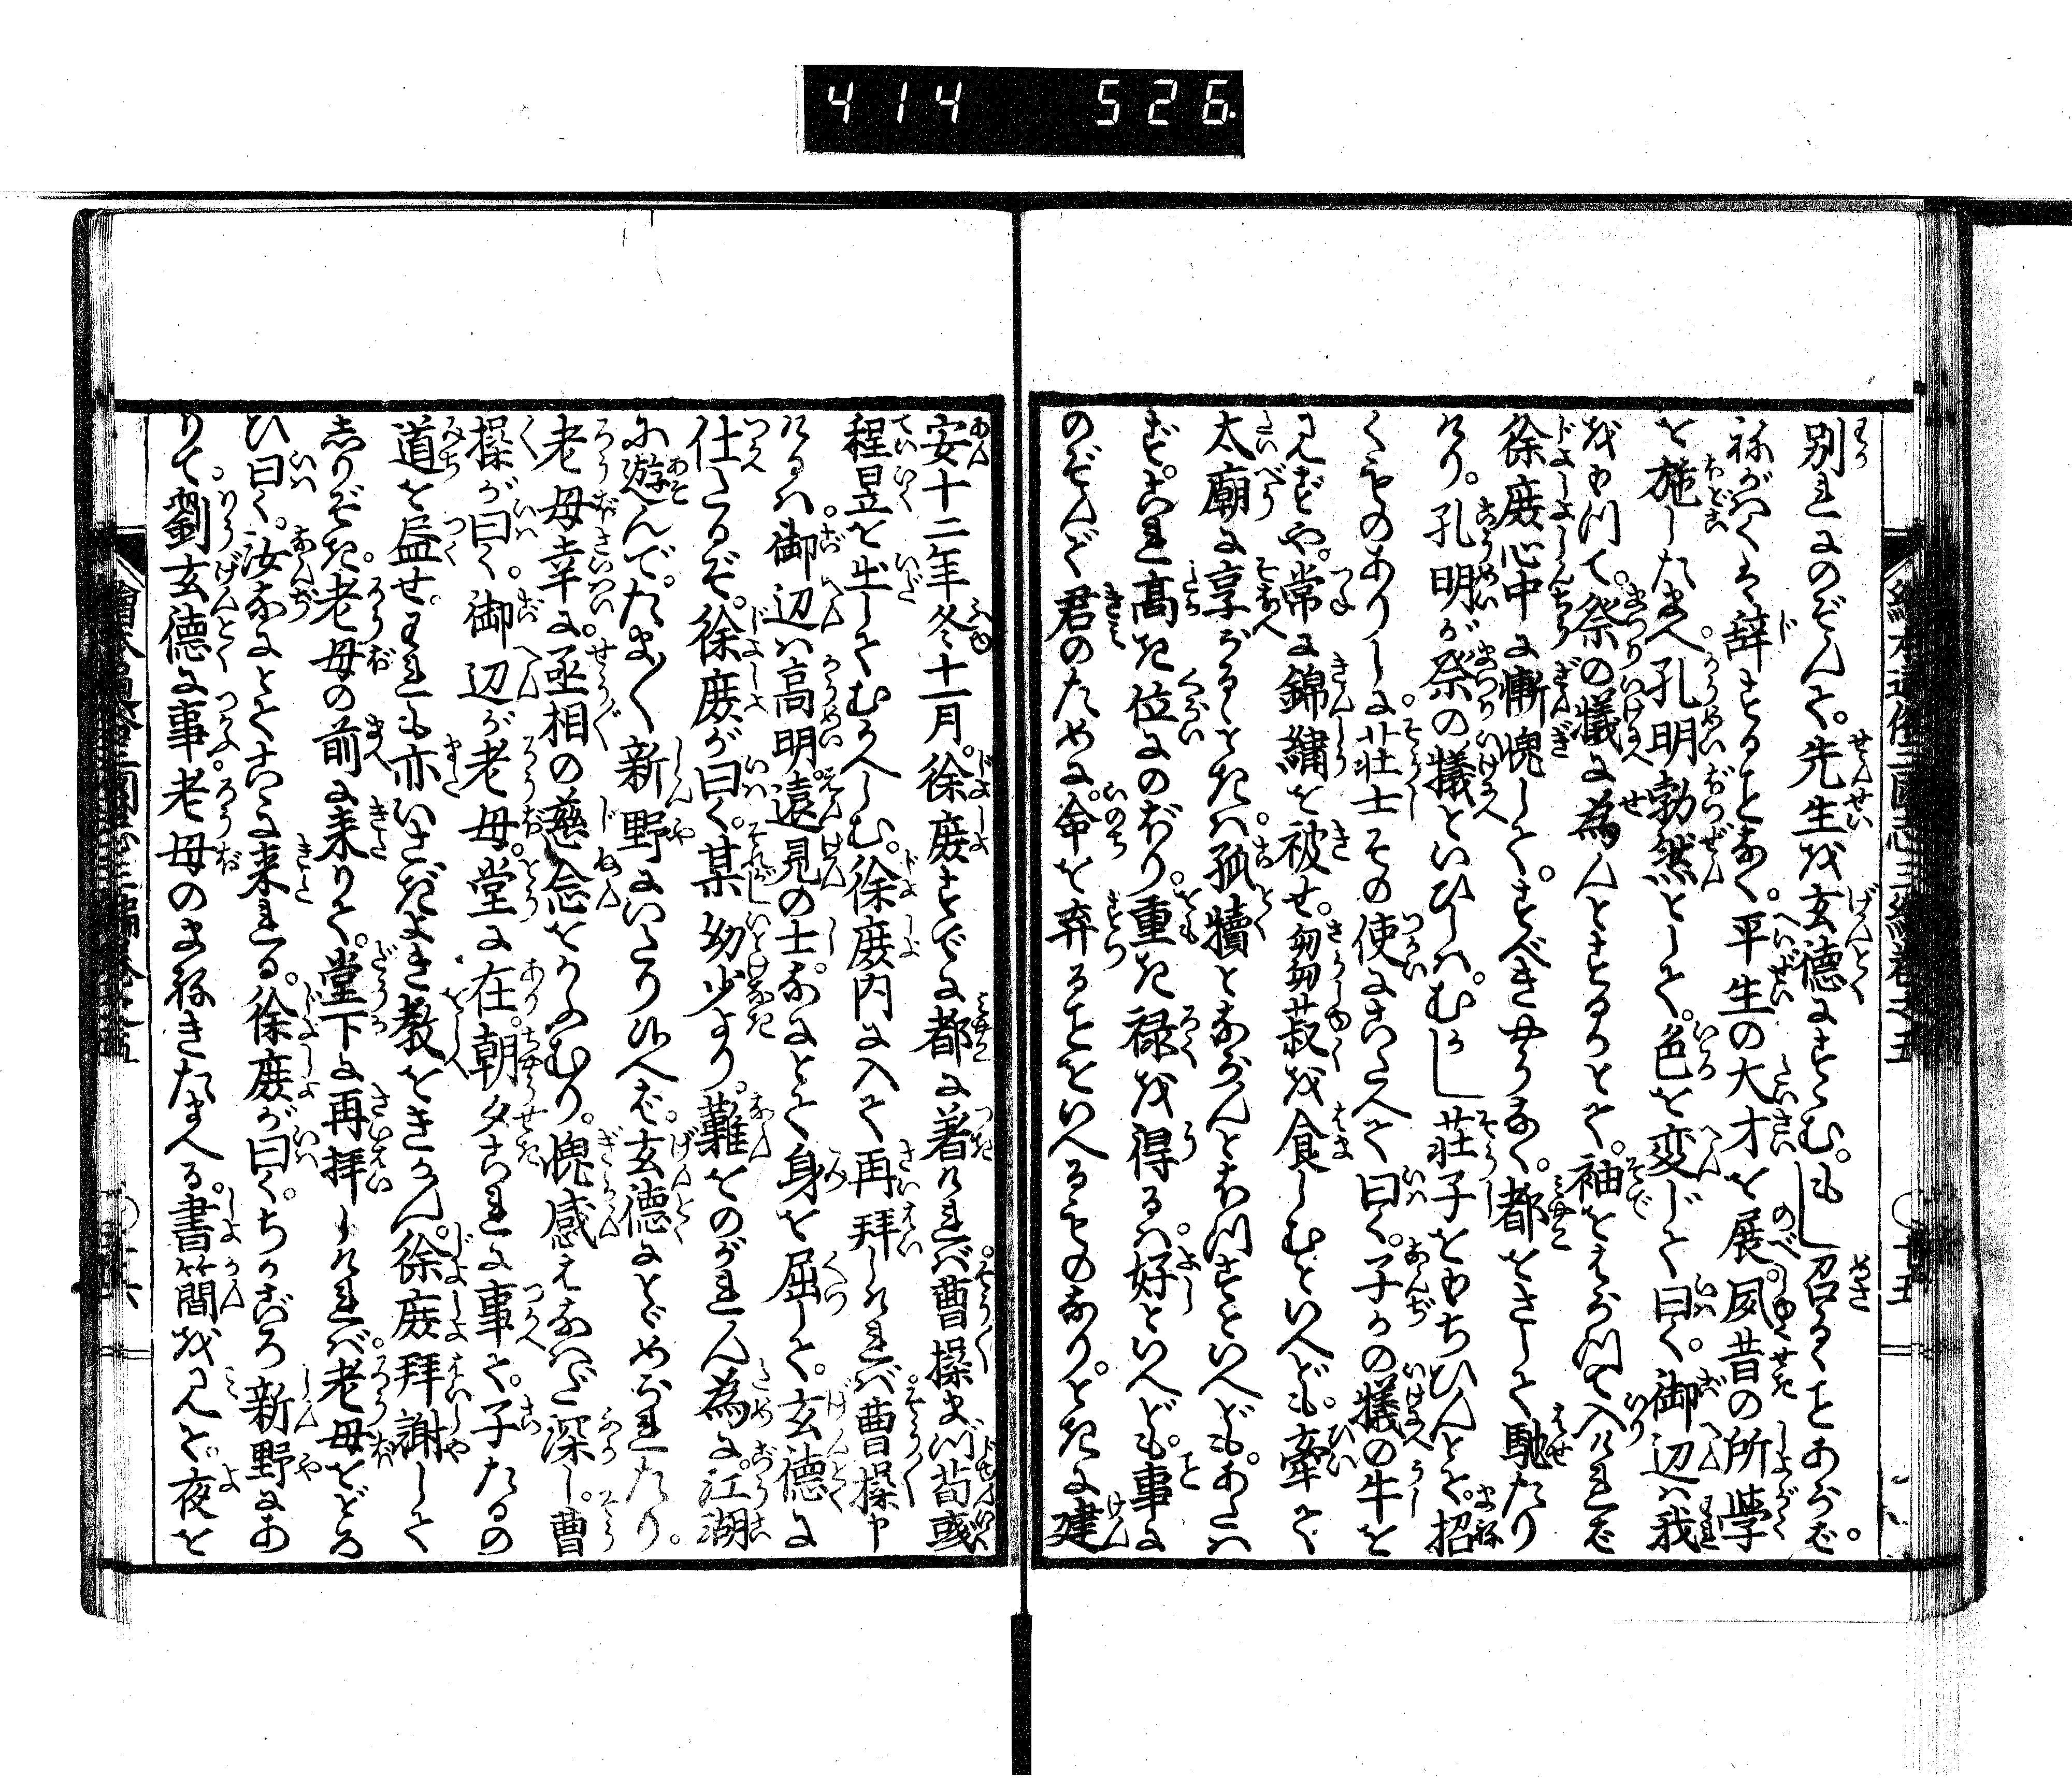 414 526
繪本通俗三國志三編巻之五 十五
別れにのぞんで。先生を玄德にすゝむ。もし召るゝことあらば。
ねがはくは辞することなく。平生の大才を展。夙昔の所学
を施したまへ孔明勃然として。色を変じて曰く。御辺は我
をもつて。祭の犠に為んとするかとて。袖をはらつて入ければ
徐庶心中に慚愧して。すべきやうなく。都をさして馳たり
けり。孔明が祭の犠といひしは。むかし荘子をもちひんとて。招
くものありしに荘士その使にこたへて曰く。子かの犠の牛を
見ずや。常に錦繍を被せ。芻菽を食しむといへども。牽て
太廟に享がるゝときは。孤犢とならんとおもへどもあたは
ず。これ高き位にのぼり。重き禄を得るは。好といへども。事に
のぞんで君のために。命を弃ることをいへるものなり。ときに建
安十二年冬十一月。徐庶すでに都に着ければ。曹操まづ荀彧
程昱を出してむかへしむ。徐庶内に入て再拝しければ。曹操申
けるは。御辺は高明。遠見の士。なにとて身を屈して。玄德に
仕たるぞ。徐庶が曰く。某幼少より。難をのがれん為に。江湖
に遊んで。たま〳〵新野にいたり候へば。玄德にとゞめられたり。
老母幸に。丞相の慈念をかふむり。愧感えなはだ深し。曹
操が曰く。御辺が老母。堂に在。朝夕これに事て。子たるの
道を盡せ。われも亦いさぎよき教をきかん。徐庶拝謝して
志りぞき。老母の前に来りて。堂下に再拝しければ。老母をどろ
ひ曰く。汝なにとてこゝに来れる。徐庶が曰く。ちかごろ新野にあ
りて。劉玄德に事。老母のまねきたまへる。書簡を見て。夜を
繪本通俗三國志三編巻之五 十六